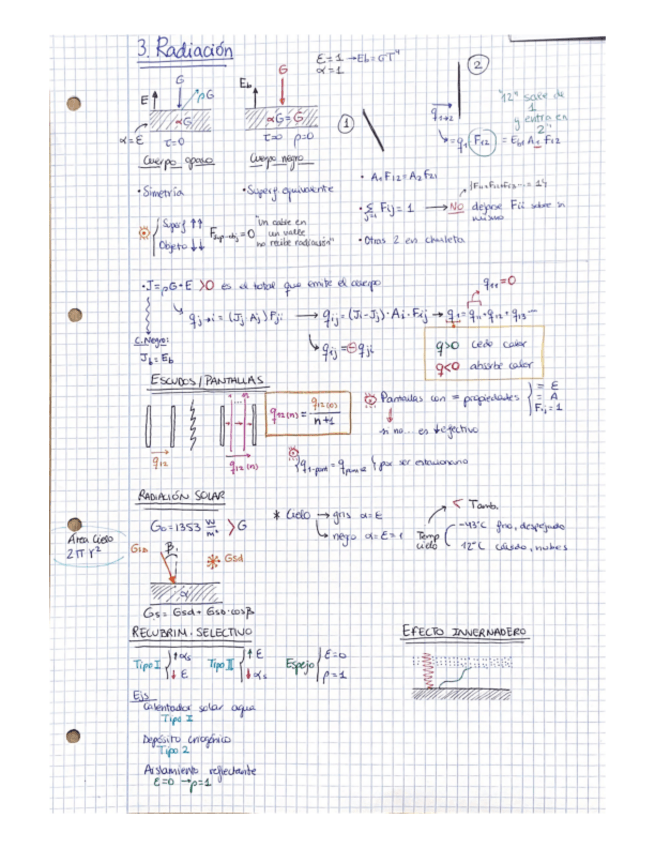 3. Radiación
ε=1 → Eb=σT⁴
α=1
G
ρG
E
αG
α=ε
τ=0
Cuerpo opaco
G
Eb
αG=G
τ=0 ρ=0
Cuerpo negro
1
2
q1→2
"12" sale de
1
y entra en
2"
= q1 F12 = Eb1 A1 F12
• Simetría
• Superf equivalente
• A1 F12 = A2 F21
Superf ↑↑
Objeto ↓↓
Fsup→obj = 0
"Un calvo en
un valle
no recibe radiación"
• Σ Fij = 1 → NO dejarse Fii sobre si
mismo
• Otras 2 en chuleta
• J = ρG + E >0 es el total que emite el cuerpo
q11=0
qj→i = (Jj Aj) Fji → qij = (Ji-Jj)·Ai·Fij → q1 = q11+q12+q13...
C. Negro:
Jb = Eb
qij = -qji
q>0 cedo calor
q<0 absorbe calor
ESCUDOS/PANTALLAS
q12
q12(n)
q12(n) = q12(0) / n+1
Pantallas con = propiedades
= E
= A
Fij = 1
si no... es ↓efectivo
q1-pant = qpant-2 } por ser estacionario
RADIACIÓN SOLAR
G0 = 1353 W/m² > G
Área Cielo
2πr²
GSD
β
Gsd
α
Gs = Gsd + GSD·cosβ
* Cielo → gris α=ε
→ negro α=ε=1
Temp
cielo
< Tamb
-43ºC frío, despejado
12ºC cálido, nubes
RECUBRIM. SELECTIVO
Tipo I
↑αs
↓ε
Tipo II
↑ε
↓αs
Espejo
ε=0
ρ=1
EFECTO INVERNADERO
Ejs
Calentador solar agua
Tipo I
Depósito criogénico
Tipo 2
Aislamiento reflectante
ε=0 → ρ=1